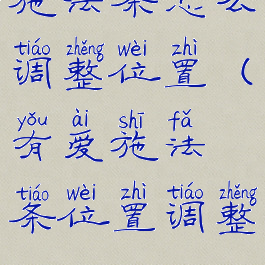 施法条怎么
tiáo zhěng wèi zhì
调整位置(
yǒu ài shī fǎ
有爱施法
tiáo wèi zhì tiáo zhěng
条位置调整